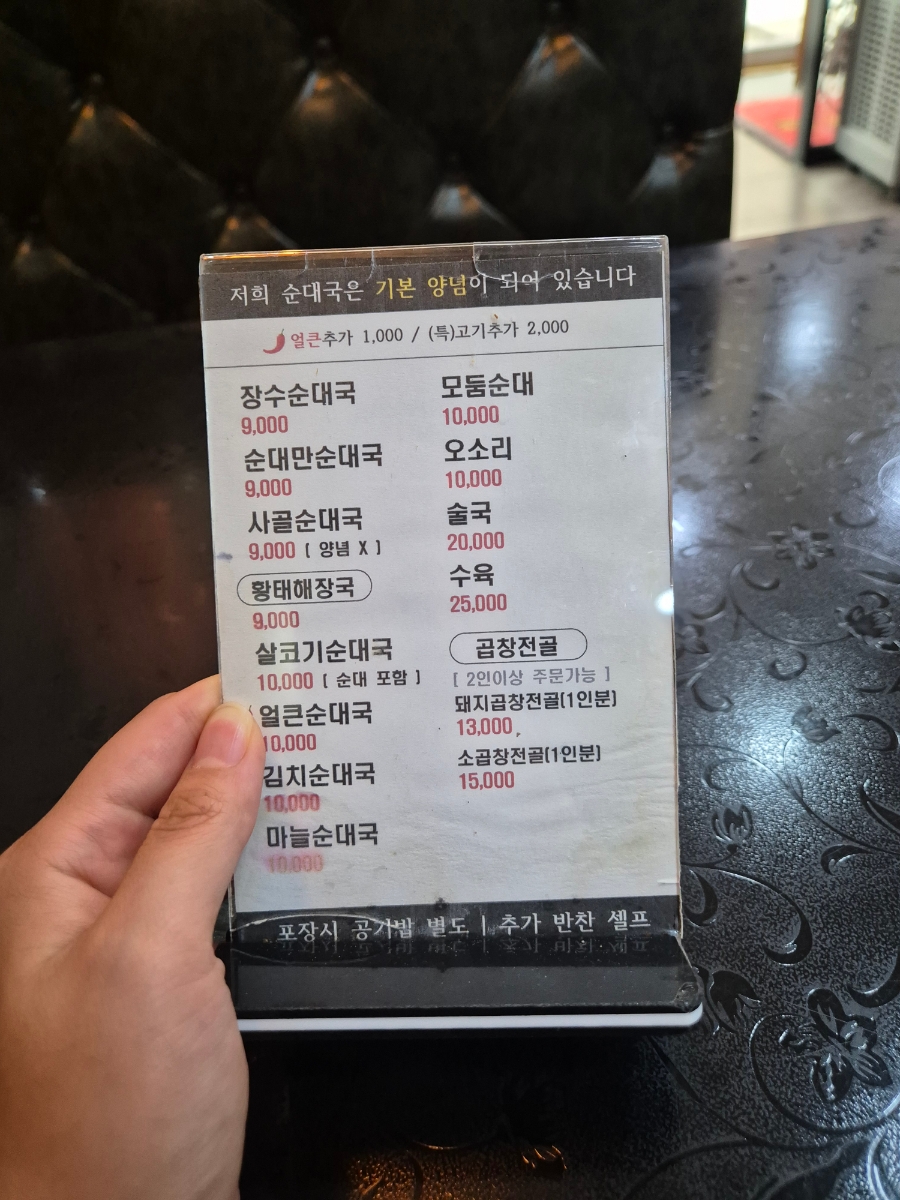 저희 순대국은 기본 양념이 되어 있습니다
얼큰추가 1,000 / (특)고기추가 2,000
장수순대국
9,000
순대만순대국
9,000
사골순대국
9,000 [ 양념 X ]
황태해장국
9,000
살코기순대국
10,000 [ 순대 포함 ]
얼큰순대국
10,000
김치순대국
10,000
마늘순대국
10,000
모둠순대
10,000
오소리
10,000
술국
20,000
수육
25,000
곱창전골
[ 2인이상 주문가능 ]
돼지곱창전골(1인분)
13,000
소곱창전골(1인분)
15,000
포장시 공기밥 별도 | 추가 반찬 셀프